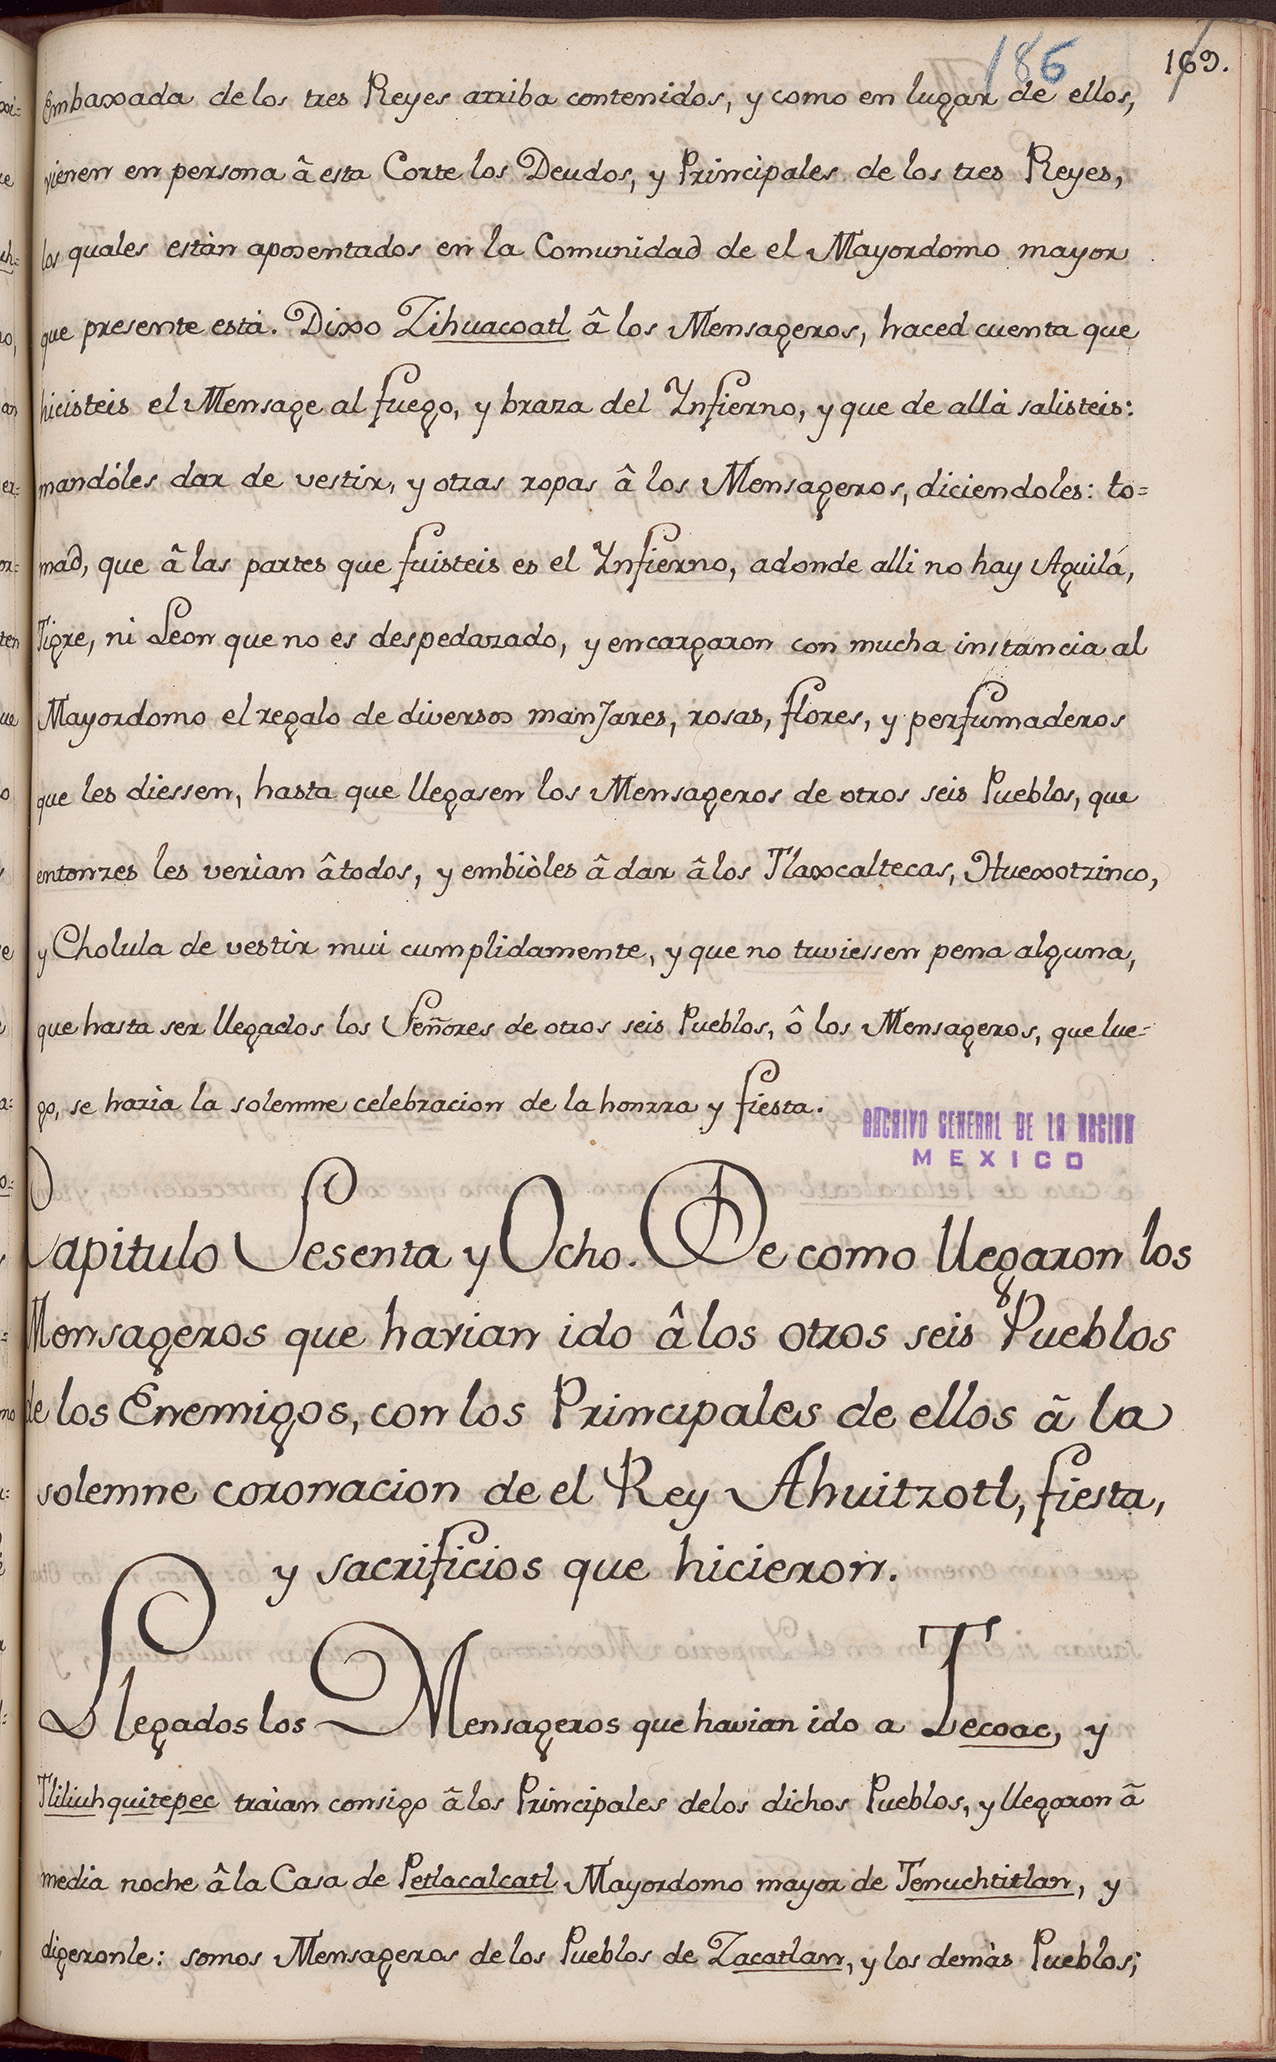 186
169.
Embaxada de los tres Reyes arriba contenidos, y como en lugar de ellos,
vienen en persona â esta Corte los Deudos, y Principales de los tres Reyes,
los quales estàn aposentados en la Comunidad de el Mayordomo mayor
que presente està. Dixo Zihuacoatl â los Mensageros, haced cuenta que
hicisteis el Mensage al fuego, y braza del Ynfierno, y que de allà salisteis:
mandóles dar de vestir, y otras ropas â los Mensageros, diciendoles: to=
mad, que â las partes que fuisteis es el Ynfierno, adonde alli no hay Aguilá,
Tigre, ni Leon que no es despedazado, y encargaron con mucha instancia al
Mayordomo el regalo de diversos manJares, rosas, flores, y perfumaderos
que les diessen, hasta que llegasen los Mensageros de otros seis Pueblos, que
entonzes les verìan â todos, y embiòles â dar â los Tlaxcaltecas, Huexotzinco,
y Cholula de vestir mui cumplidamente, y que no tuviessen pena alguna,
que hasta ser llegados los Señores de otros seis Pueblos, ô los Mensageros, que lue=
go, se harìa la solemne celebracion de la honrra y fiesta.
ARCHIVO GENERAL DE LA NACION
MEXICO
Capitulo Sesenta y Ocho. De como llegaron los
Mensageros que havian ido â los otros seis Pueblos
de los Enemigos, con los Principales de ellos â la
solemne coronacion de el Rey Ahuitzotl, fiesta,
y sacrificios que hicieron.
Llegados los Mensageros que havian ido a Tecoac, y
Tliliuhquitepec traìan consigo â los Principales de los dichos Pueblos, y llegaron â
media noche â la Casa de Petlacalcatl Mayordomo mayor de Tenuchtitlan, y
digeronle: somos Mensageros de los Pueblos de Zacatlan, y los demàs Pueblos;